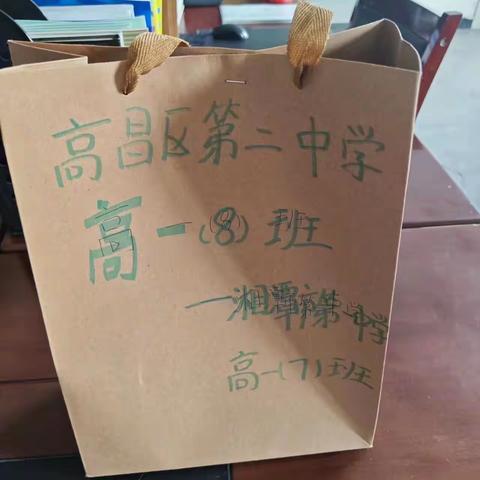 高昌区第二中学
高一(8)班
一湘潭市第一中学
高一(7)班